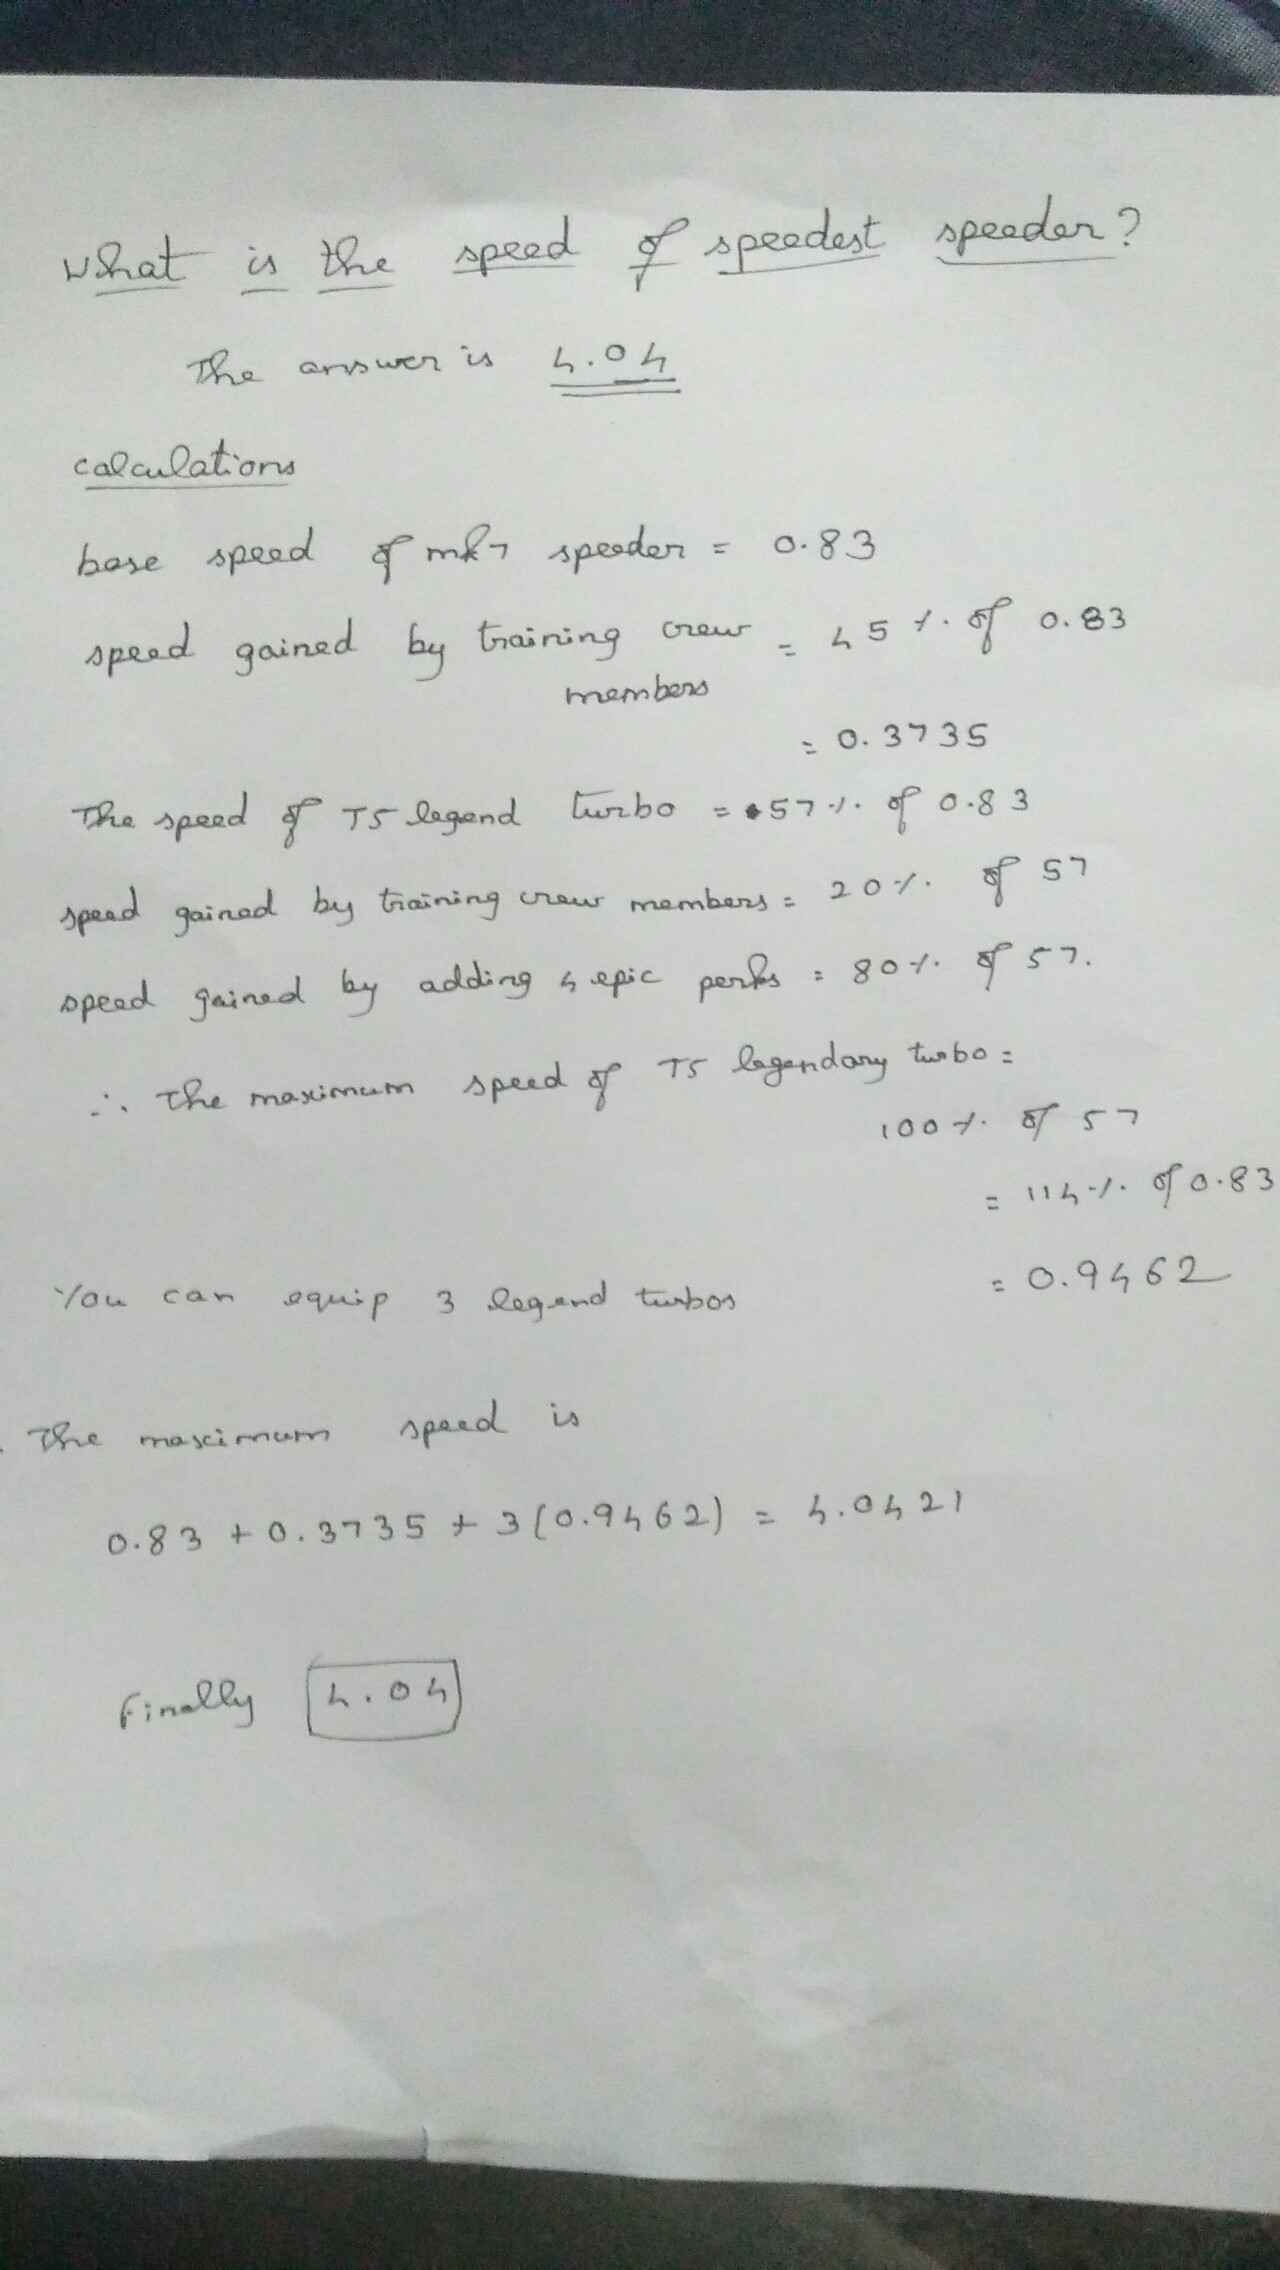 What is the speed of speedest speeder?
The answer is 4.04
calculations
base speed of mk7 speeder = 0.83
speed gained by training crew members = 45 % of 0.83
= 0.3735
The speed of T5 legend turbo = 57 % of 0.83
speed gained by training crew members = 20 % of 57
speed gained by adding 4 epic perks = 80 % of 57.
∴ The maximum speed of T5 legendary turbo =
100 % of 57
= 114 % of 0.83
= 0.9462
You can equip 3 legend turbos
The maximum speed is
0.83 + 0.3735 + 3(0.9462) = 4.0421
Finally 4.04